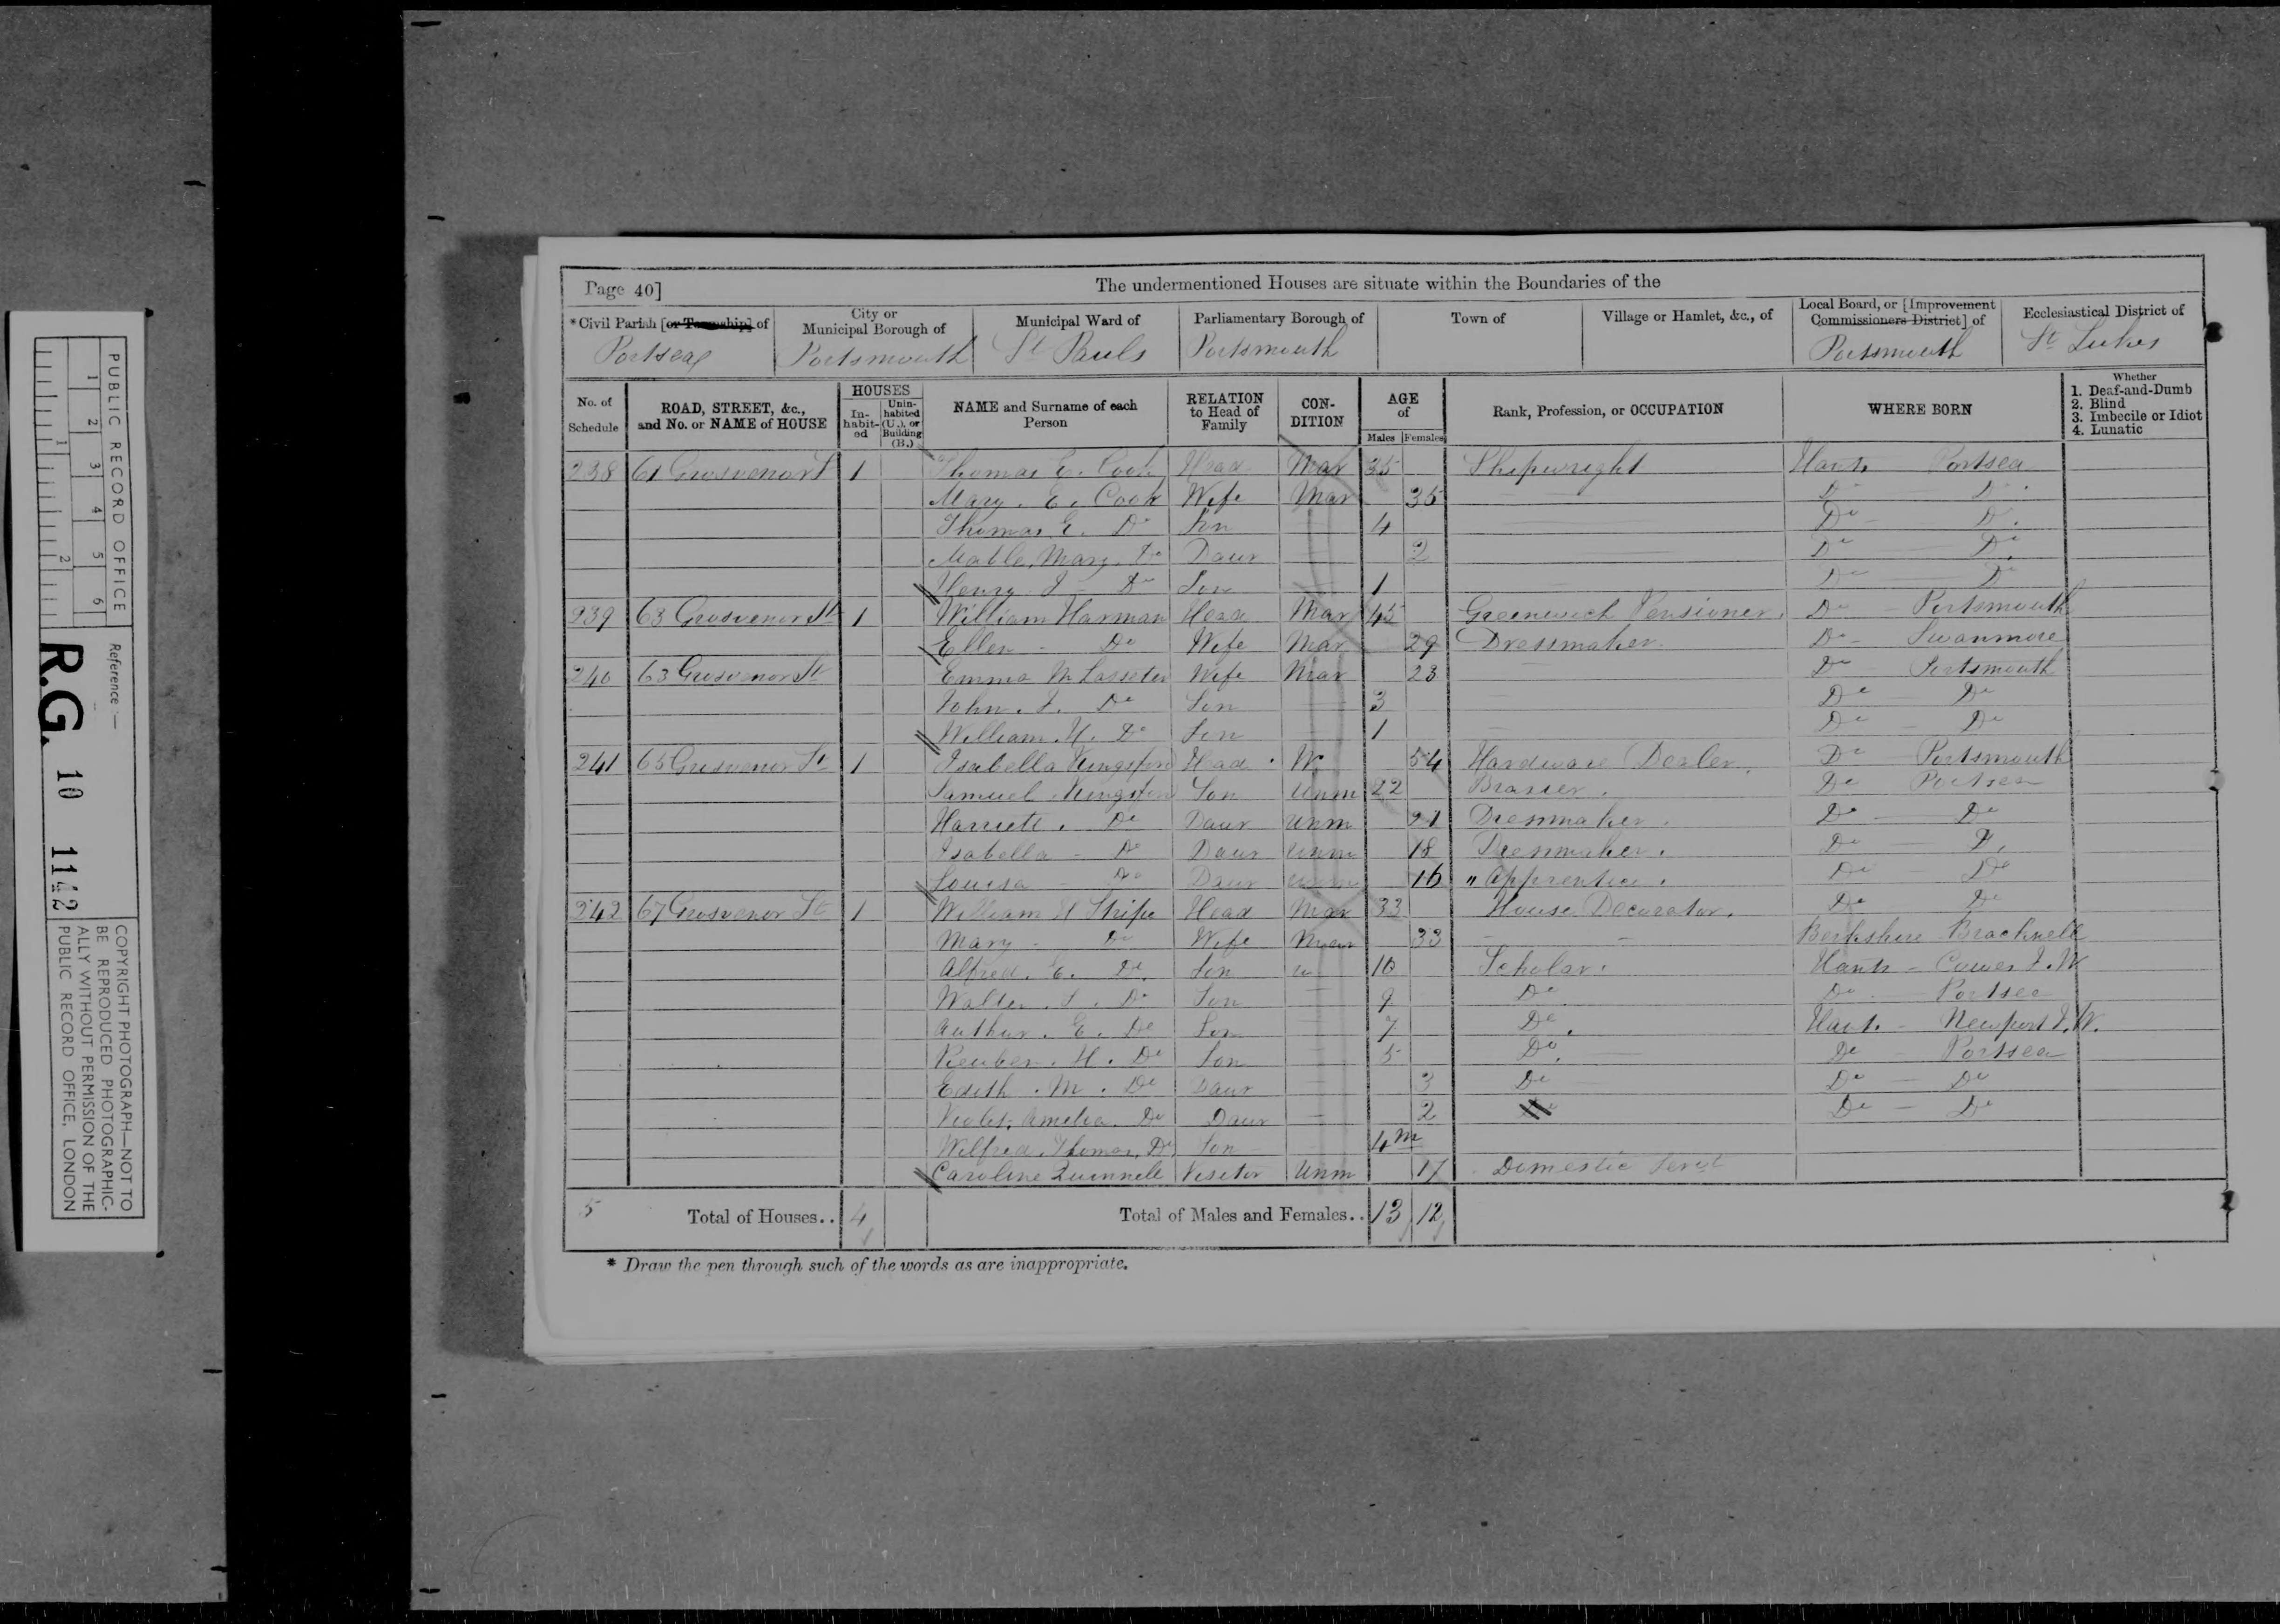 PUBLIC RECORD OFFICE
1 2 3 4 5 6
1 2
Reference :—
R.G. 10 1142
COPYRIGHT PHOTOGRAPH—NOT TO
BE REPRODUCED PHOTOGRAPHIC-
ALLY WITHOUT PERMISSION OF THE
PUBLIC RECORD OFFICE, LONDON
Page 40]
The undermentioned Houses are situate within the Boundaries of the
*Civil Parish [or Township] of
City or Municipal Borough of
Municipal Ward of
Parliamentary Borough of
Town of
Village or Hamlet, &c., of
Local Board, or [Improvement Commissioners District] of
Ecclesiastical District of
Portsea Portsmouth St Pauls Portsmouth Portsmouth St Lukes
No. of Schedule
ROAD, STREET, &c., and No. or NAME of HOUSE
HOUSES
In-habit-ed
Unin-habited (U.), or Building (B.)
NAME and Surname of each Person
RELATION to Head of Family
CON-DITION
AGE of
Males Females
Rank, Profession, or OCCUPATION
WHERE BORN
Whether
1. Deaf-and-Dumb
2. Blind
3. Imbecile or Idiot
4. Lunatic
238 61 Grosvenor St 1 Thomas E. Cook Head Mar 35 Shipwright Hants Portsea
Mary. E. Cook Wife Mar 35 Do Do
Thomas E. Do Son 4 Do Do
Mable. Mary. Do Daur 2 Do Do
Henry J Do Son 1 Do Do
239 63 Grosvenor St 1 William Harman Head Mar 45 Greenwich Pensioner. Do Portsmouth
Ellen Do Wife Mar 29 Dressmaker. Do Swanmore
240 63 Grosvenor St Emma M Lasseter Wife Mar 23 Do Portsmouth
John. J. Do Son 3 Do Do
William. H. Do Son 1 Do Do
241 65 Grosvenor St 1 Isabella Head W 54 Hardware Dealer. Do Portsmouth
Samuel Son Unm 22 Brasier. Do Portsea
Harriett. Do Daur Unm 21 Dressmaker. Do Do
Isabella Do Daur Unm 18 Dressmaker. Do Do
Louisa Do Daur Unm 16 " Apprentice. Do Do
242 67 Grosvenor St 1 William H Stripe Head Mar 33 House Decorator. Do Do
Mary Do Wife Mar 33 Berkshire Bracknell
Alfred. E. Do Son 10 Scholar. Hants Cowes I.W
Walter. Do Son 9 Do Do Portsea
Authur. E. Do Son 7 Do. Hants Newport I.W.
Reuben. H. Do Son 5 Do. Do Portsea
Edith. M. Do Daur 3 Do Do Do
Violet. Amelia. Do Daur 2 Do Do Do
Wilfred. Thomas. Do Son 4m
Caroline Quinnell Visitor Unm 17 Domestic Servt
5 Total of Houses.. 4 Total of Males and Females.. 13 12
* Draw the pen through such of the words as are inappropriate.